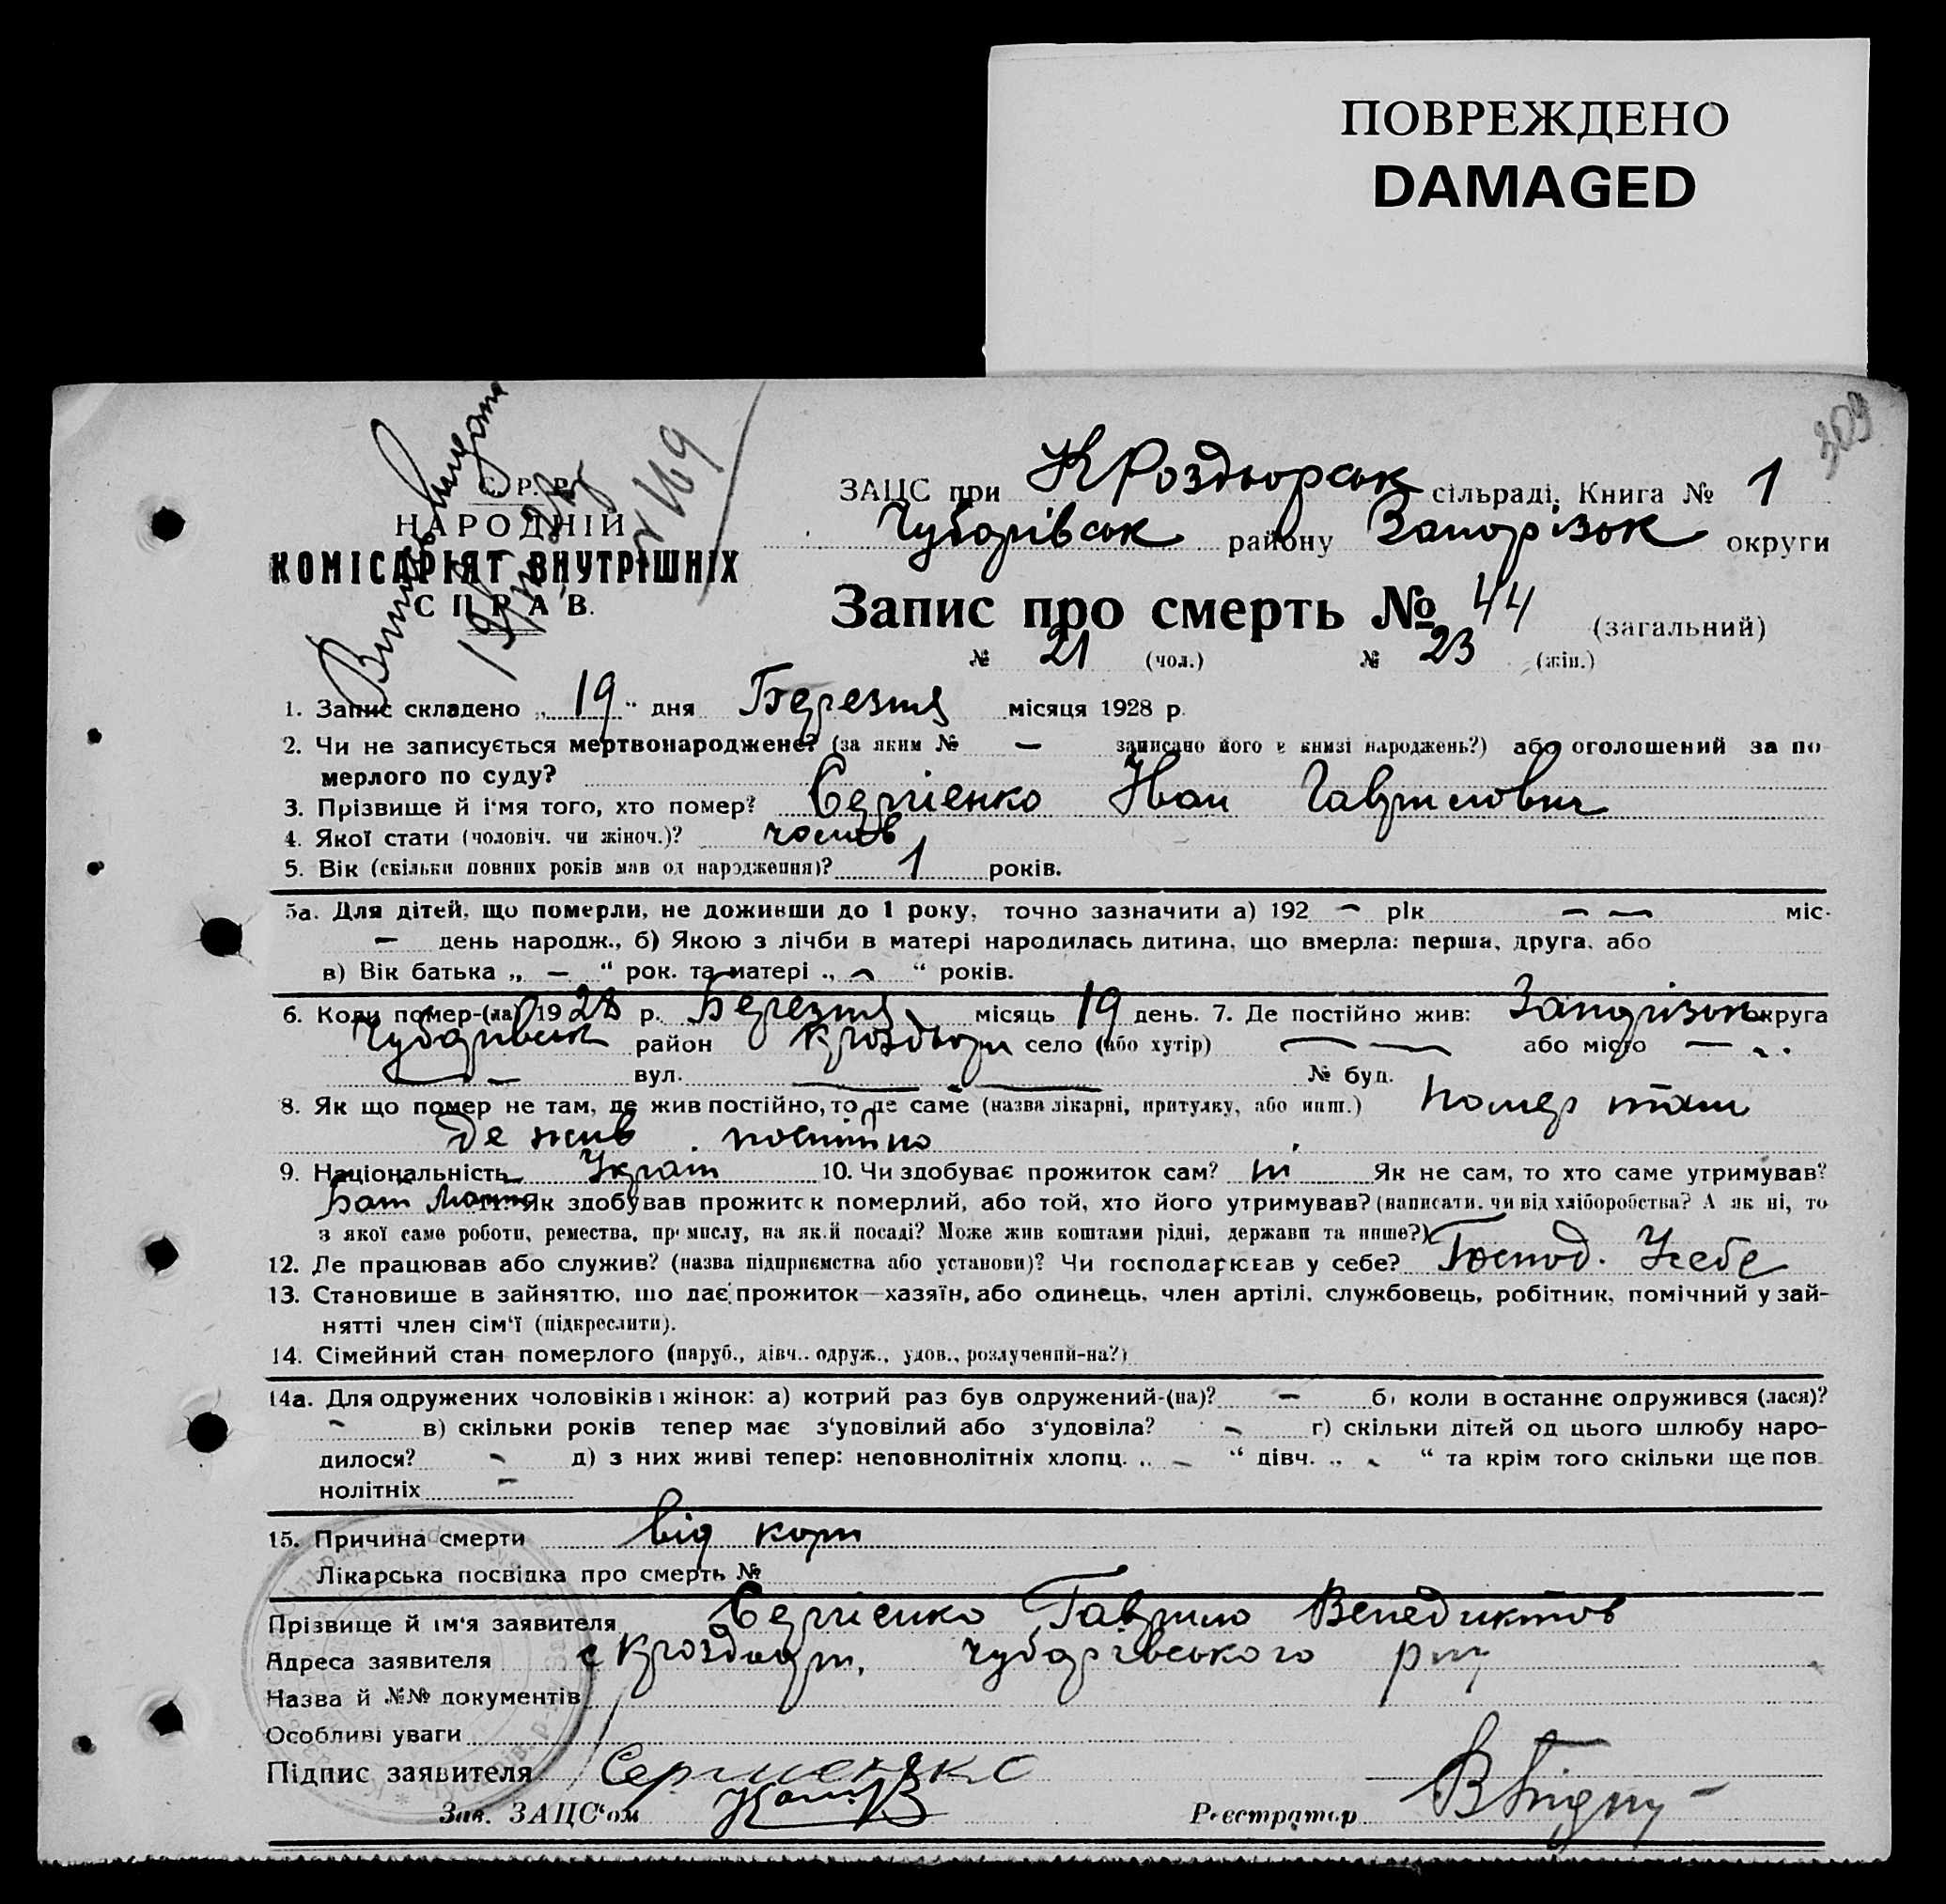 ПОВРЕЖДЕНО
DAMAGED
309
С. Р. Р.
НАРОДНІЙ
КОМІСАРІЯТ ВНУТРІШНІХ
СПРАВ.
№ 169
ЗАЦС при К Роздорськ сільраді. Книга № 1
Чубарівськ району Запорізьк округи
Запис про смерть № 44 (загальний)
№ 21 (чол.) № 23 (жін.)
1. Запис складено „ 19 “ дня Березня місяця 1928 р.
2. Чи не записується мертвонароджене? (за яким № — записано його в книзі народжень?) або оголошений за по-
мерлого по суду?
3. Прізвище й ім'я того, хто помер? Сергієнко Іван Гаврилович
4. Якої стати (чоловіч. чи жіноч.)? чолов
5. Вік (скільки повних років мав од народження)? 1 років.
5а. Для дітей, що померли, не доживши до 1 року, точно зазначити а) 192 — рік — — міс.
— день народж., б) Якою з лічби в матері народилась дитина, що вмерла: перша, друга, або
в) Вік батька „ — “ рок. та матері „ — “ років.
6. Коли помер-(ла) 1928 р. Березня місяць 19 день. 7. Де постійно жив: Запорізьк округа
Чубарівськ район Кроздори село (або хутір) — — або місто —
— — вул. — — № буд.
8. Як що помер не там, де жив постійно, то де саме (назва лікарні, притулку, або инш.) Помер там
де жив постійно
9. Національність Украін 10. Чи здобуває прожиток сам? ні Як не сам, то хто саме утримував?
Бат Мати 11. Як здобував прожиток померлий, або той, хто його утримував? (написати, чи від хліборобства? А як ні, то
з якої саме роботи, ремества, промислу, на якій посаді? Може жив коштами рідні, держави та инше?)
12. Де працював або служив? (назва підприємства або установи)? Чи господарював у себе? Господ. У себе
13. Становище в зайняттю, що дає прожиток—хазяїн, або одинець, член артілі, службовець, робітник, помічний у зай-
нятті член сім'ї (підкреслити).
14. Сімейний стан померлого (паруб., дівч.. одруж., удов., розлучений-на?)
14а. Для одружених чоловіків і жінок: а) котрий раз був одружений-(на)? — б) коли в останнє одружився (лася)?
— в) скільки років тепер має з'удовілий або з'удовіла? — г) скільки дітей од цього шлюбу наро-
дилося? — д) з них живі тепер: неповнолітніх хлопц. „ — “ дівч. „ — “ та крім того скільки ще пов-
нолітніх —
15. Причина смерти Від кору
Лікарська посвідка про смерть №
Прізвище й ім'я заявителя Сергієнко Гаврило Венедиктов
Адреса заявителя с Кроздори, Чубарівського р-ну
Назва й №№ документів
Особливі уваги
Підпис заявителя Сергиенко
Зав. ЗАЦС'ом Реєстратор